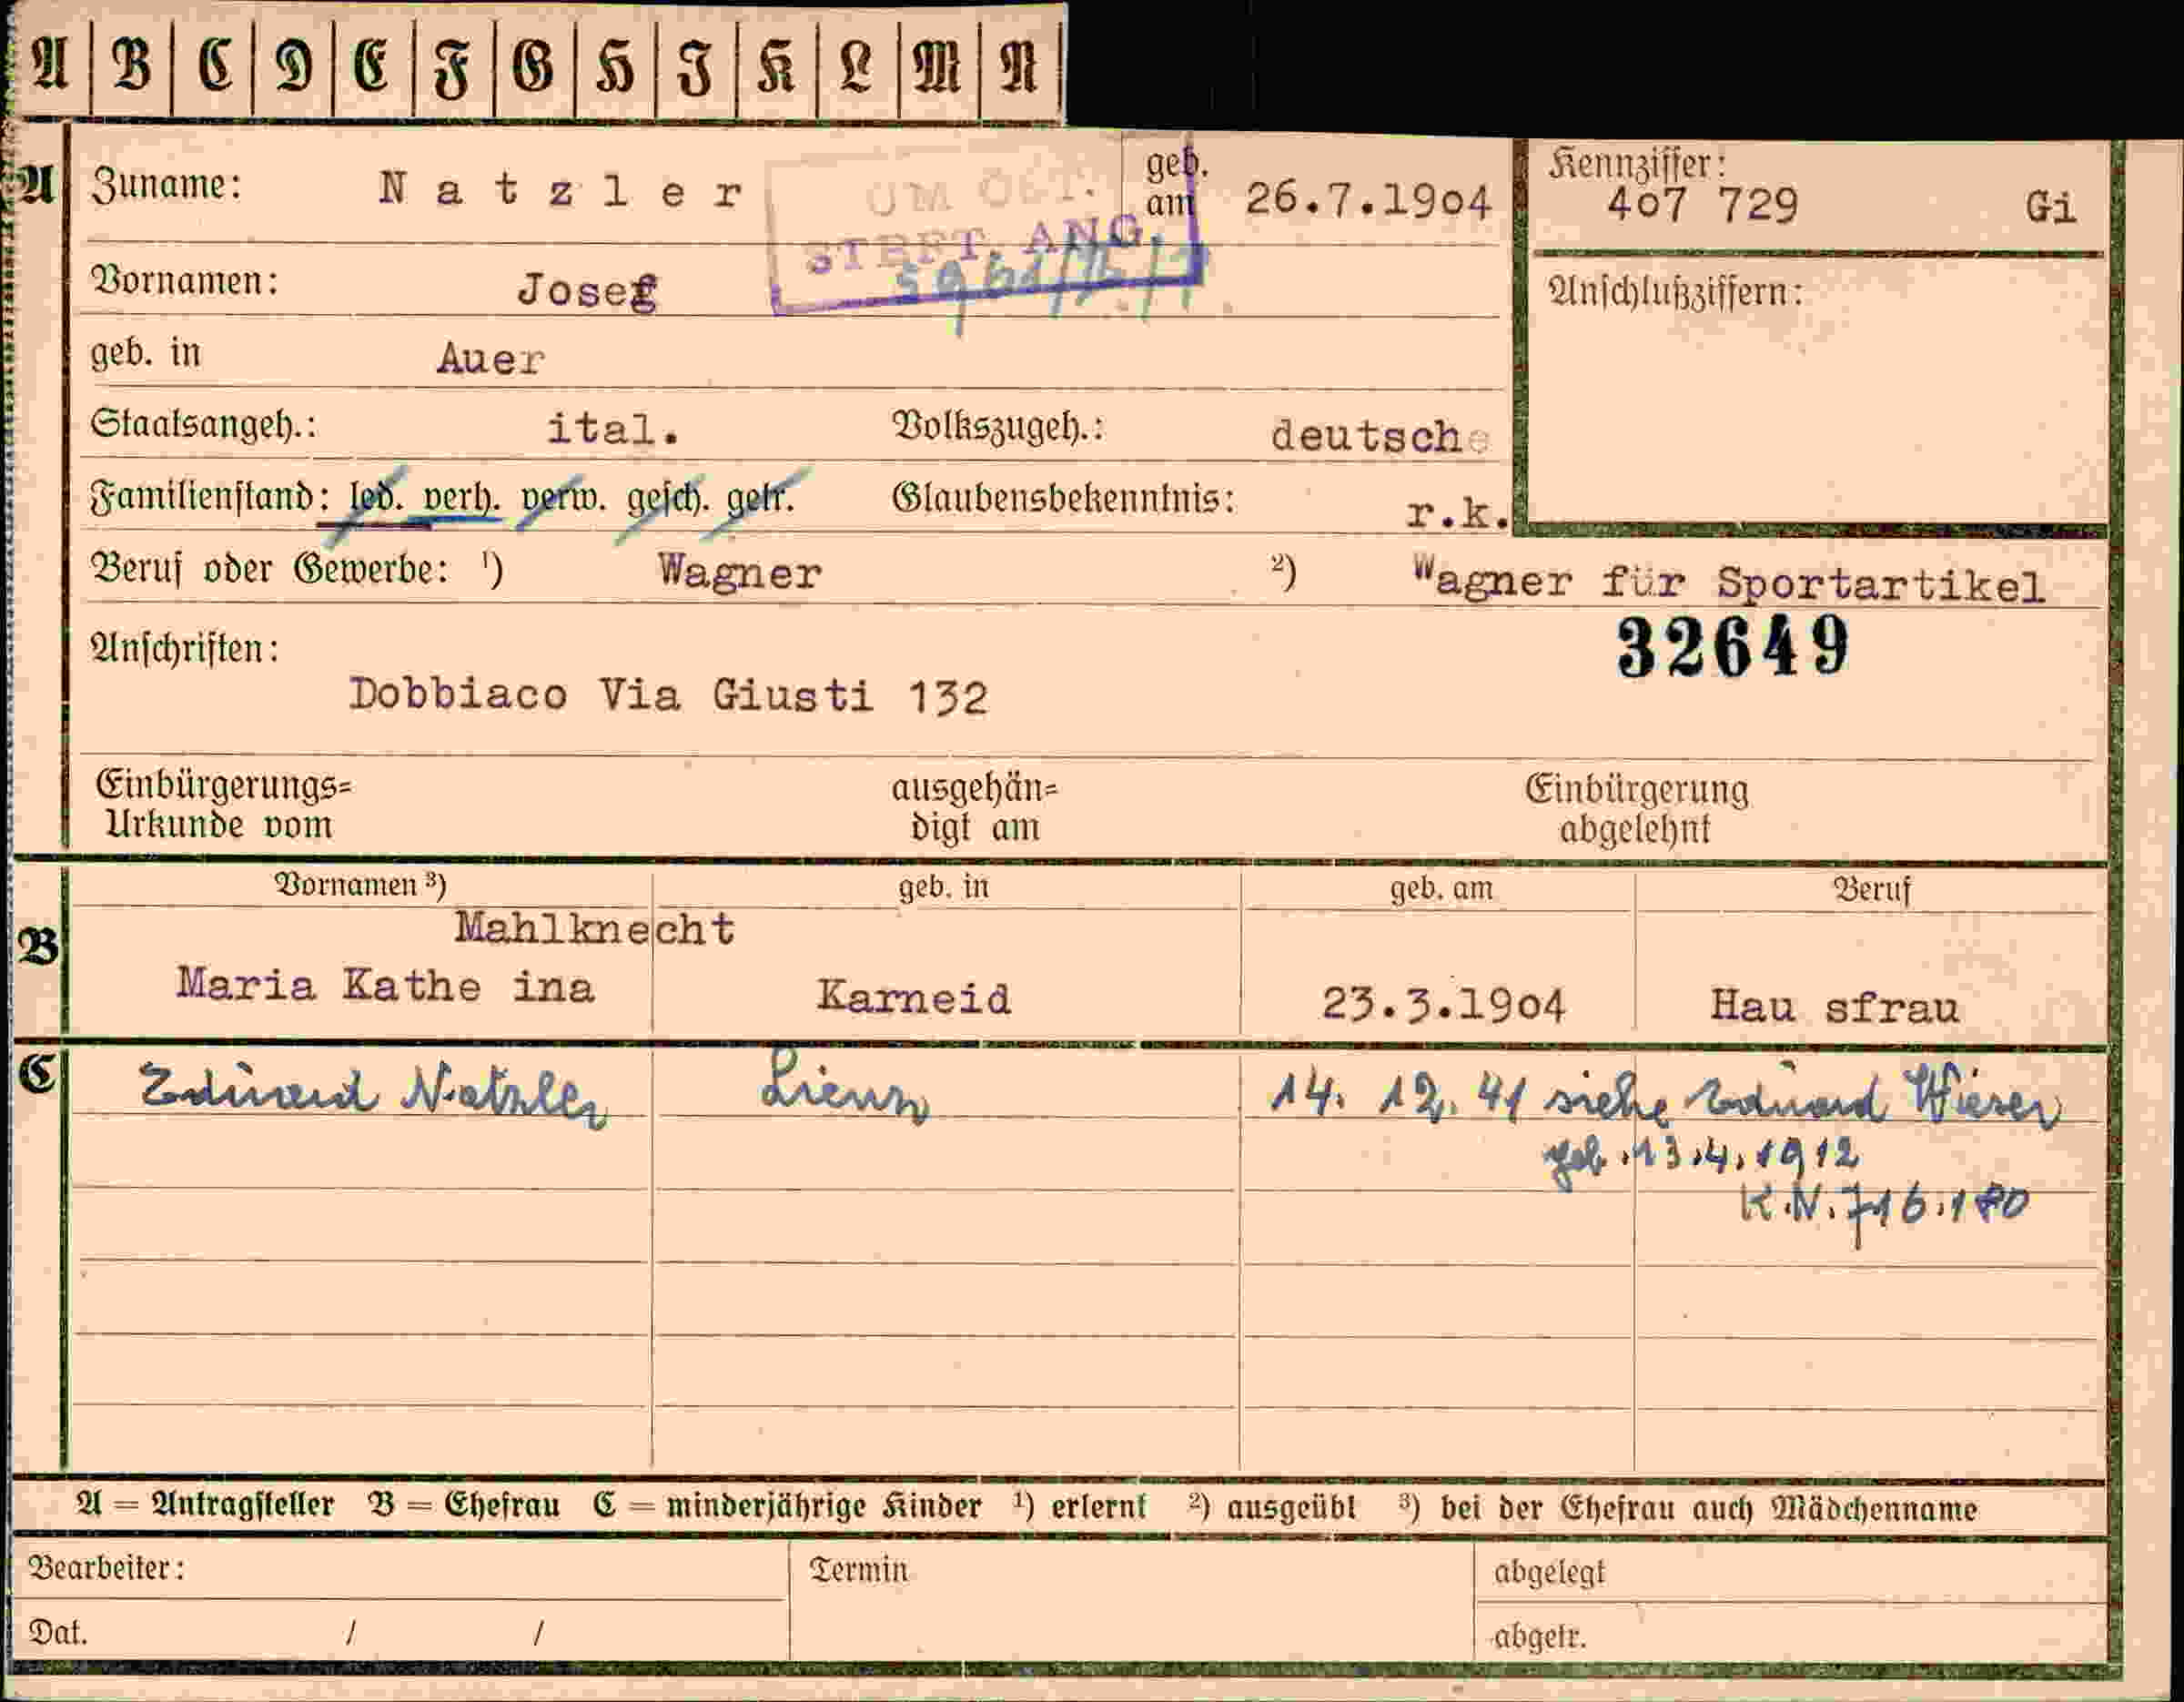 A B C D E F G H I K L M N
A Zuname: Natzler geb. am 26.7.19o4 Kennziffer: 4o7 729 Gi
Vornamen: Josef
STRFT. ANG.
Anschlußziffern:
geb. in Auer
Staatsangeh.: ital. Volkszugeh.: deutsche
Familienstand: led. verh. verw. gesch. getr. Glaubensbekenntnis: r.k.
Beruf oder Gewerbe: ¹) Wagner ²) Wagner für Sportartikel
32649
Anschriften:
Dobbiaco Via Giusti 132
Einbürgerungs= Urkunde vom ausgehän= digt am Einbürgerung abgelehnt
Vornamen ³) geb. in geb. am Beruf
B Mahlknecht
Maria Kathe ina Karneid 23.3.19o4 Hau sfrau
C Eduard Natzler Lienz 14. 12. 41 siehe Eduard Wieser
geb. 13.4.1912
K.N. 716.180
A = Antragsteller B = Ehefrau C = minderjährige Kinder ¹) erlernt ²) ausgeübt ³) bei der Ehefrau auch Mädchenname
Bearbeiter: Termin abgelegt
Dat. / / abgetr.